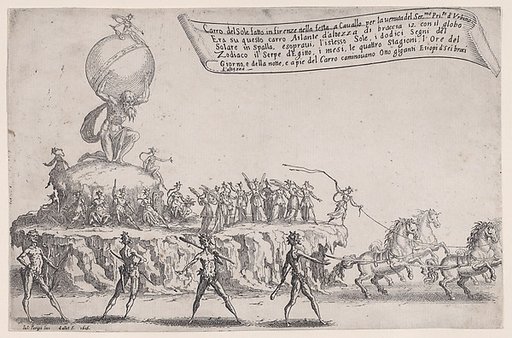 Carro del Sole fatto in firenze nella festa a Cavallo per la venuta del Ser.mo Prī.pe d'Urbino
Era su questo carro Atlante d'altezza di braccia 12. con il globo
Solare in Spalla, e sopravi l'istesso Sole, i dodici Segni del
Zodiaco il Serpe d'Egitto, i mesi, le quattro Stagioni, l'Ore del
Giorno, e della notte, e a pie del Carro caminavano Otto giganti Etiopi di sei bracci
d'altezza.
Iul. Parigi Inv. Callot F. 1616.